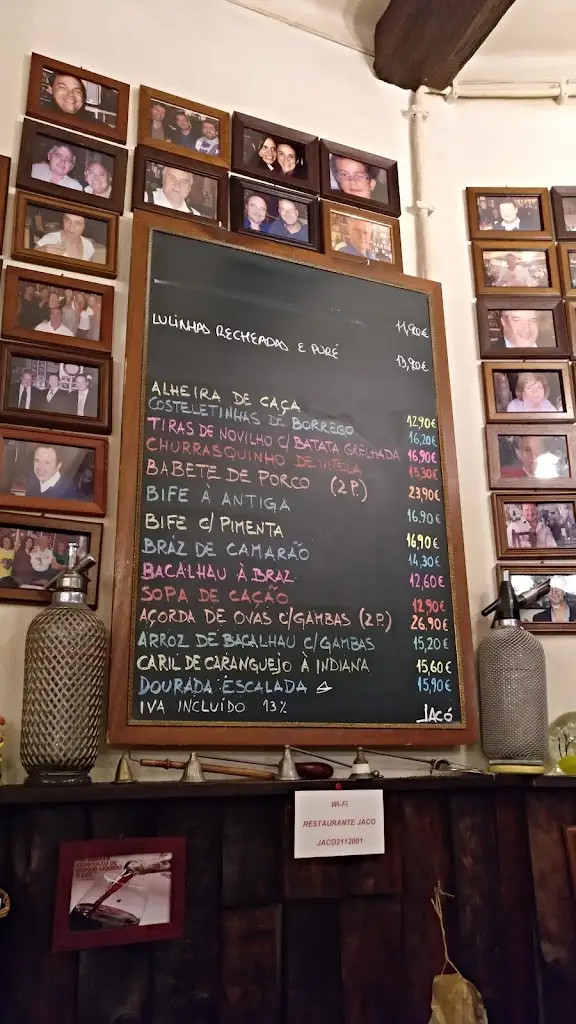 11,90€
LULINHAS RECHEADAS E PURÉ 13,90€
ALHEIRA DE CAÇA 12,90€
COSTELETINHAS DE BORREGO 16,20€
TIRAS DE NOVILHO C/ BATATA GRELHADA 16,90€
CHURRASQUINHO DE VITELA 15,30€
BABETE DE PORCO (2 P.) 23,90€
BIFE À ANTIGA 16,90€
BIFE C/ PIMENTA 16,90€
BRÁZ DE CAMARÃO 14,30€
BACALHAU À BRAZ 12,60€
SOPA DE CAÇÃO 12,90€
AÇORDA DE OVAS C/GAMBAS (2 P.) 26,90€
ARROZ DE BACALHAU C/GAMBAS 15,20€
CARIL DE CARANGUEJO À INDIANA 15,60€
DOURADA ESCALADA 15,90€
IVA INCLUÍDO 13% JACÓ
Wi-Fi
RESTAURANTE JACO
JACO2112001